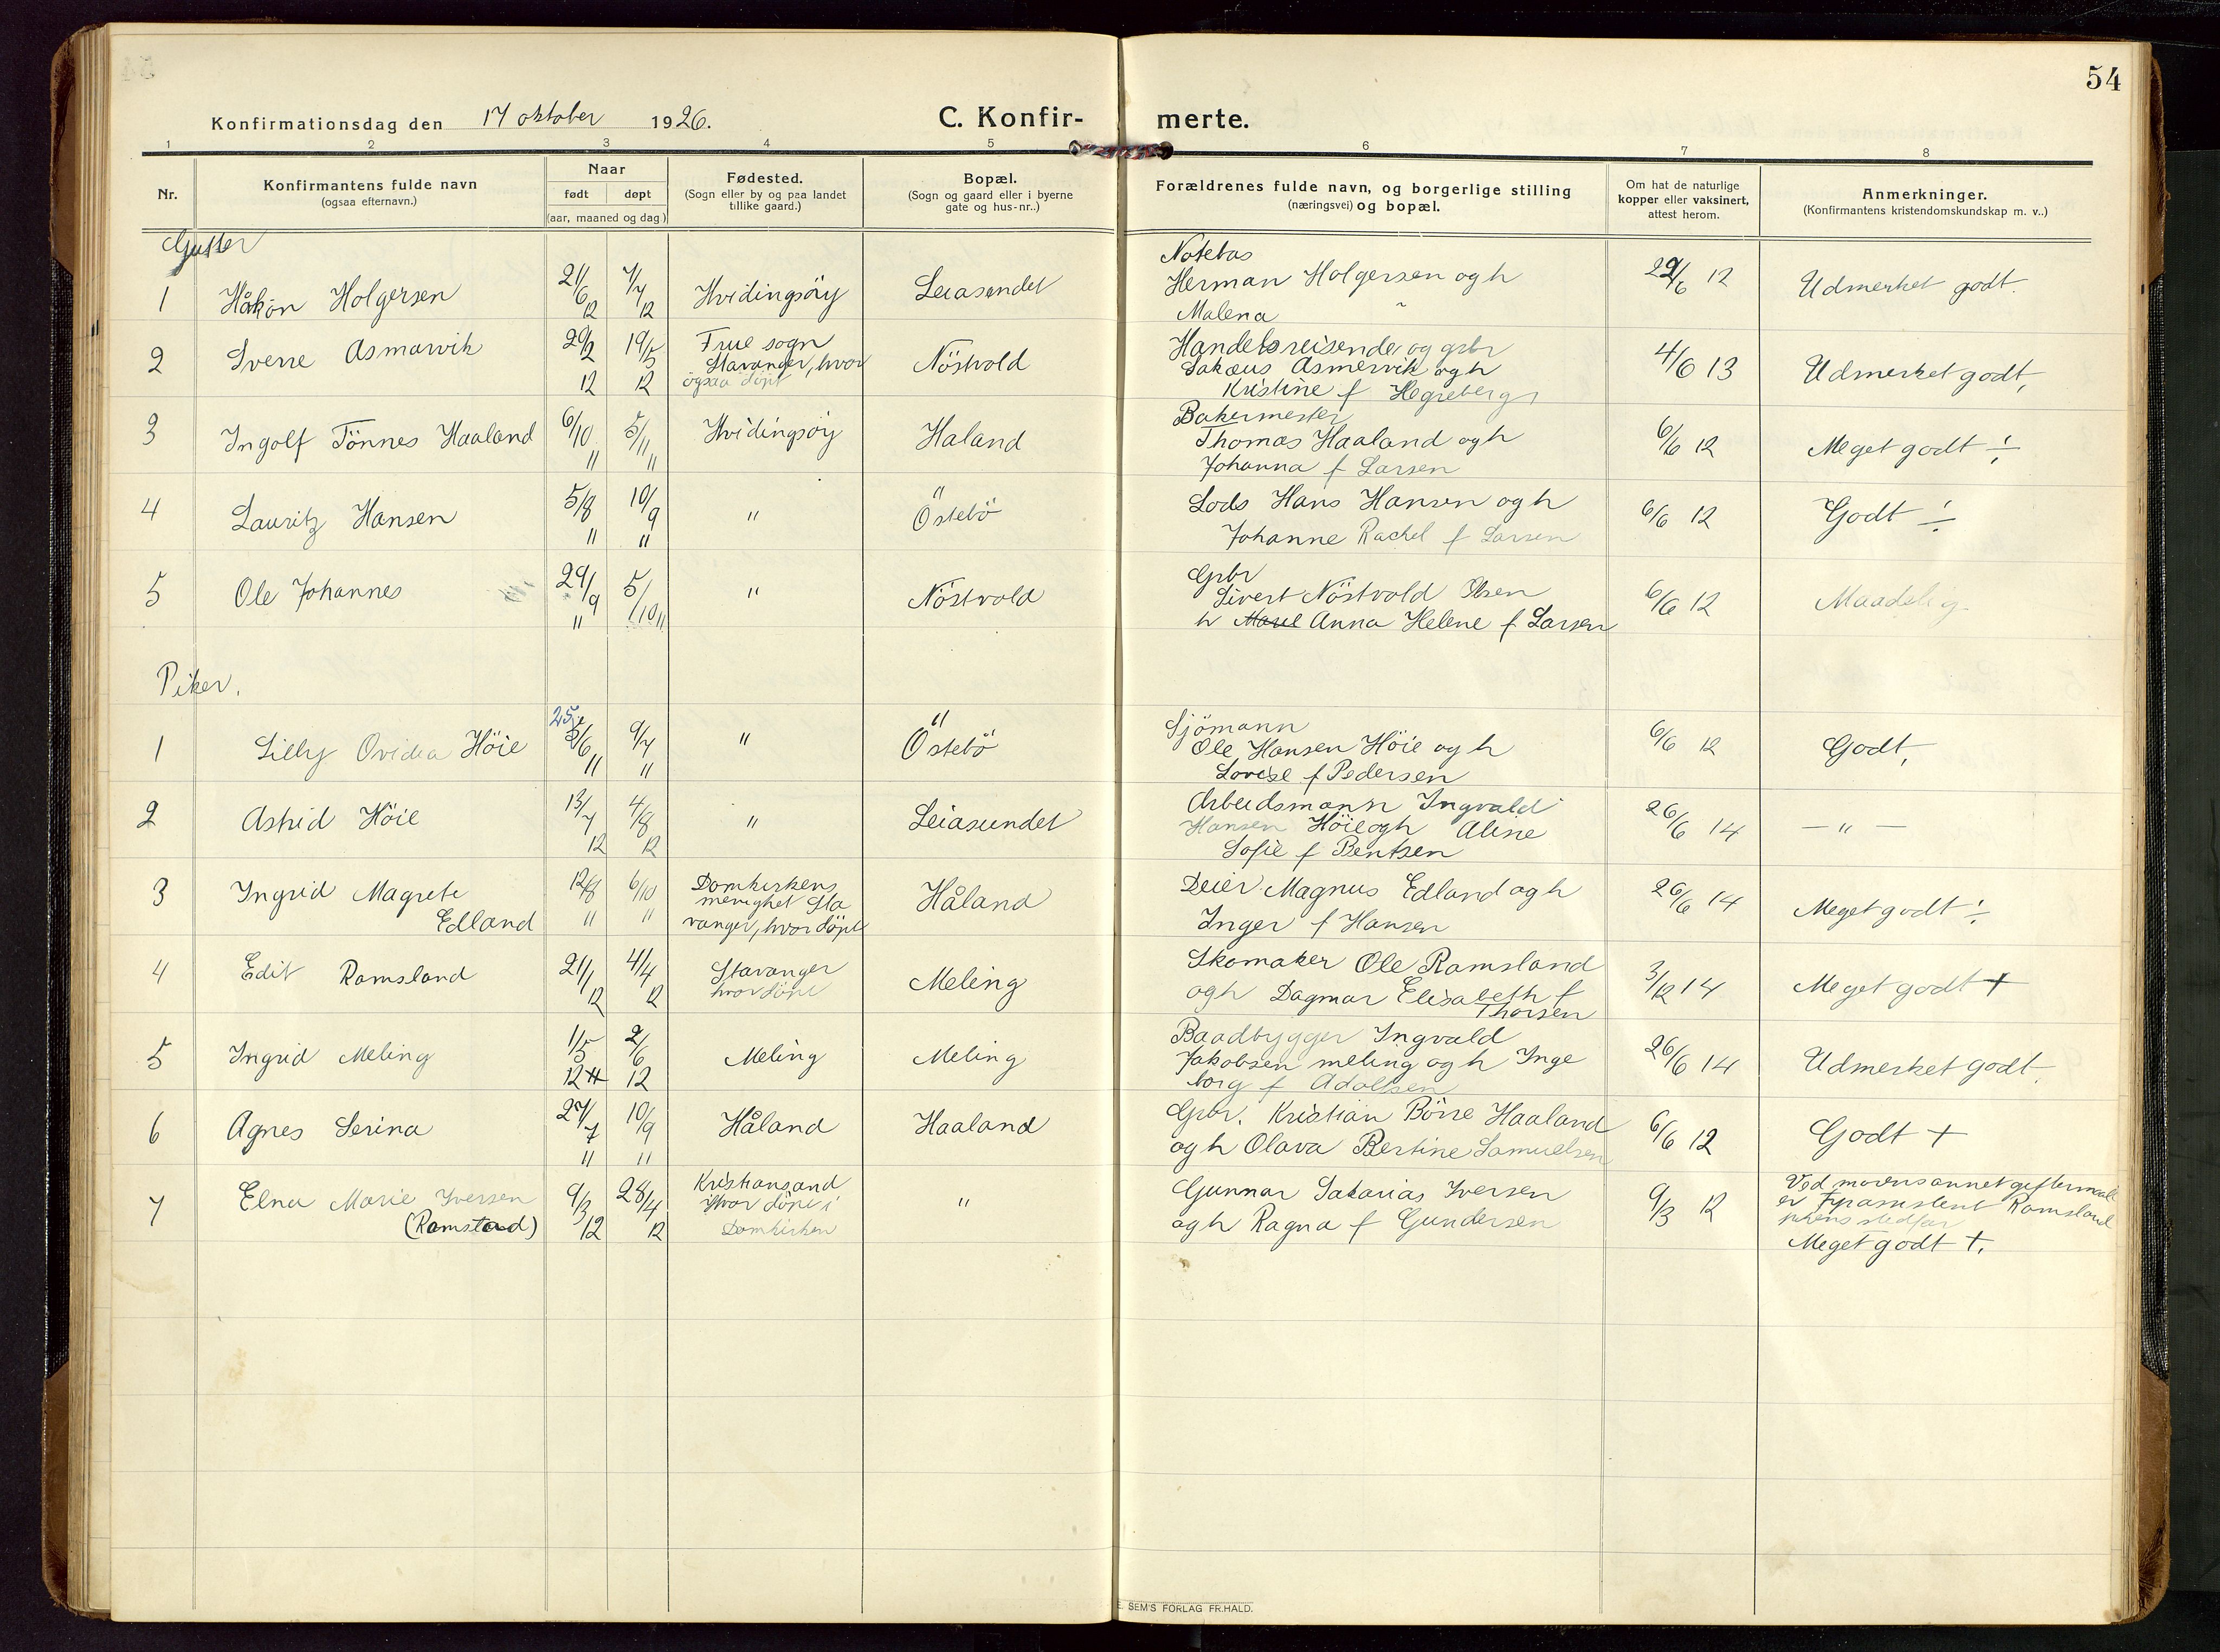 54
Konfirmationsdag den 17 oktober 1926.
C. Konfir- merte.
1 2 3 4 5 6 7 8
Nr.
Konfirmantens fulde navn
(ogsaa efternavn.)
Naar
født døpt
(aar, maaned og dag.)
Fødested.
(Sogn eller by og paa landet
tillike gaard.)
Bopæl.
(Sogn og gaard eller i byerne
gate og hus-nr..)
Forældrenes fulde navn, og borgerlige stilling
(næringsvei) og bopæl.
Om hat de naturlige
kopper eller vaksinert,
attest herom.
Anmerkninger.
(Konfirmantens kristendomskundskap m. v..)
Gutter
1 Håkon Holgersen 21/6 12 7/7 12 Hvidingsöy Leiasundet
Notebas
Herman Holgersen og h
Malena "
29/6 12 Udmerket godt.
2 Sverre Asmarvik 29/2 12 19/5 12
Frue sogn
Stavanger, hvor
ogsaa döpt
Nöstvold
Handelsreisende og grbr
Sakæus Asmervik og h
Kristine f Hegreberg
4/6 13 Udmerket godt,
3 Ingolf Tönnes Haaland 6/10 11 5/11 11 Hvidingsöy Haland
Bakermester
Thomas Haaland og h
Johanna f Larsen
6/6 12 Meget godt ÷
4 Lauritz Hansen 5/8 11 10/9 11 " Östebö
Lods Hans Hansen og h
Johanne Rachel f Larsen
6/6 12 Godt ÷
5 Ole Johannes 29/9 11 5/10 11 " Nöstvold
Grbr
Sivert Nöstvold Olsen
h Anna Helene f Larsen
6/6 12 Maadelig
Piker.
1 Lilly Ovidea Höie 25/6 11 9/7 11 " Östebö
Sjömann
Ole Hansen Höie og h
Lovise f Pedersen
6/6 12 Godt,
2 Astrid Höie 13/7 12 4/8 12 " Leiasundet
Arbeidsmann Ingvald
Hansen Höie og h Aline
Sofie f Bentsen
26/6 14 — " —
3 Ingrid Magrete
Edland
12/8 11 6/10 11
Domkirkens
menighet Sta
vanger, hvor döpt
Håland
Deier Magnus Edland og h
Inger f Hansen
26/6 14 Meget godt ÷
4 Edit Ramsland 21/1 12 4/4 12
Stavanger
hvor döpt
Meling
Skomaker Ole Ramsland
og h Dagmar Elisabeth f
Thorsen
3/12 14 Meget godt +
5 Ingrid Meling 1/5 12 2/6 12 Meling Meling
Baadbygger Ingvald
Jakobsen meling og h Inge
borg f Adolfsen
26/6 14 Udmerket godt.
6 Agnes Serina 27/7 11 10/9 11 Håland Haaland
Gbr. Kristian Börre Haaland
og h Olava Bertine Samuelsen
6/6 12 Godt +
7 Elna Marie Iversen
(Ramstad)
9/3 12 28/4 12
Kristiansand
hvor döpt i
Domkirken
"
Gunnar Sakarias Iversen
og h Ragna f Gundersen
9/3 12
Ved morens annet giftermaal
er Fyrassistent Ramsland
pikens stedfar
Meget godt +.
E. SEM'S FORLAG FR.HALD.